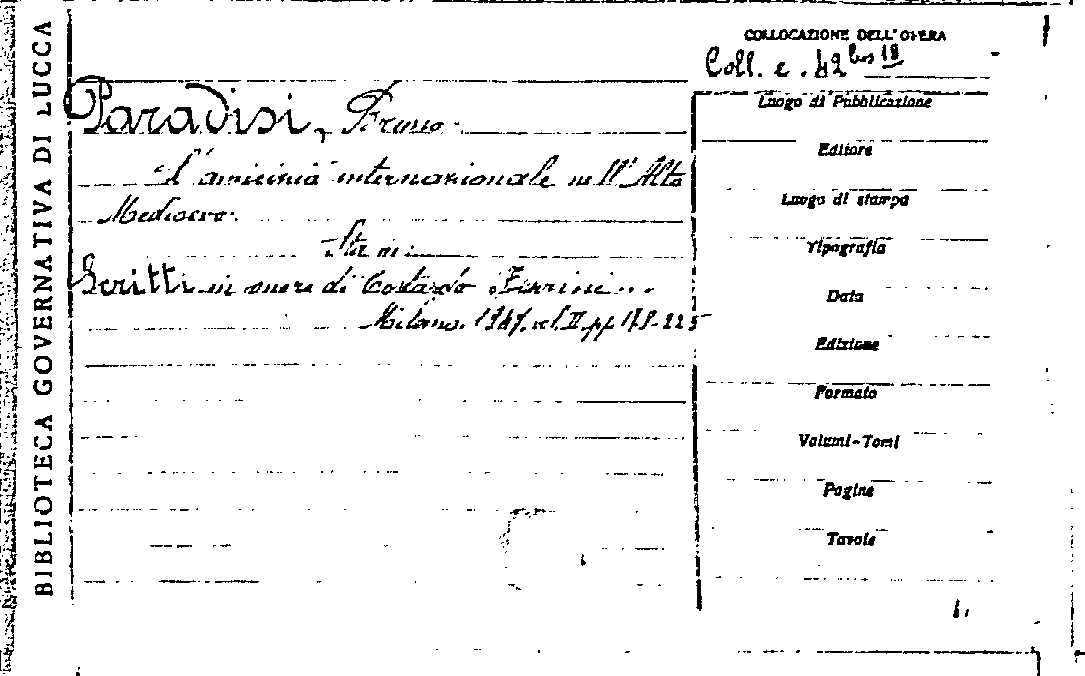 BIBLIOTECA GOVERNATIVA DI LUCCA
COLLOCAZIONE DELL'OPERA
Coll. e. 42 bis 18
Paradisi, Bruno.
L'amicizia internazionale nell'Alto
Medioevo.
Sta in:
Scritti in onore di Contardo Ferrini...
Milano. 1947. vol. II pp. 178-225
Luogo di Pubblicazione
Editore
Luogo di stampa
Tipografia
Data
Edizione
Formato
Volumi-Tomi
Pagine
Tavole